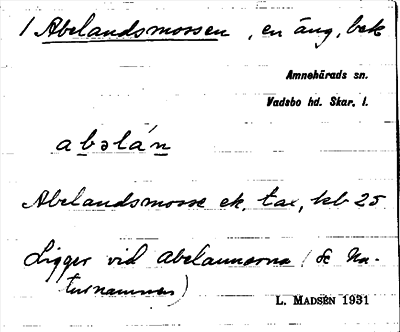 1 Abelandsmossen, en äng, bek
Amnehärads sn.
Vadsbo hd. Skar. l.
abəlán
Abelandsmosse ek. tax, kb 25
Ligger vid Abelannarna (se Na-
turnamnen)
L. MADSÉN 1931